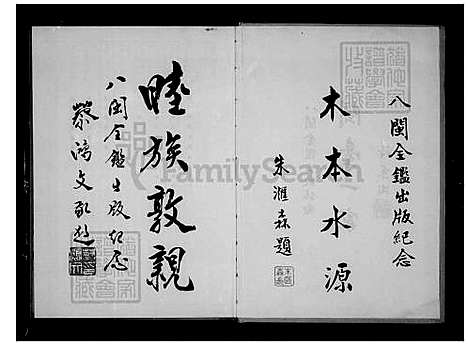 八閩全鑑出版紀念
木本水源
朱滙森題
睦族敦親
八閩全鑑出版紀念
蔡鴻文敬題
FamilySearch